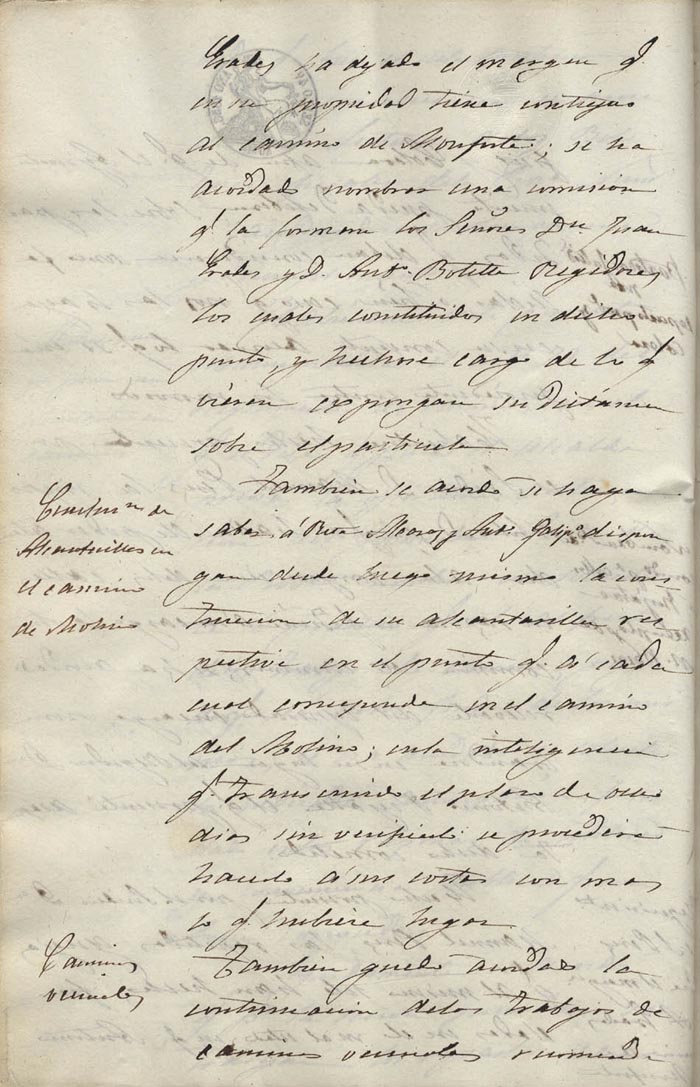 Prades ha dejado el margen q.
en su propiedad tiene contiguo
al camino de Monforte; se ha
acordado nombrar una comision
q. la formaran los Señores Dn Juan
Prades y D. Anto. Botella Regidores
los cuales constituidos en dicho
punto, y hechose cargo de lo q.
vieren espongan su dictámen
sobre el particular
Construccn. de
Alcantarillas en
el camino
de Molino
Tambien se acordó se haga
saber á Pedro y Anto. dispon
gan desde luego mismo la cons
truccion de su alcantarilla res
pectiva en el punto q. á cada
cual corresponde en el camino
del Molino; en la inteligencia
q. transcurrido el plazo de ocho
dias sin verificarlo se procederá
hacerlo á sus costas con mas
lo q. hubiere lugar
Caminos
vecinales
Tambien quedó acordado la
continuacion de los trabajos de
caminos vecinales